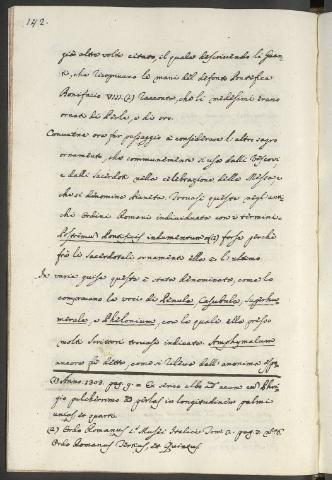 142.
già altre volte citato, il quale descrivendo li Guan-
ti, che ricoprivano le mani del defonto Pontefice
Bonifacio VIII. (1) racconta, che li medesimi erano
ornati di Perle, e di oro.
Conviene ora far passaggio a considerare l'altro sagro
ornamento, che communemente si usa dalli Vescovi
e dalli Sacerdoti nella celebrazione della Messa, e
che si denomina Pianeta. Trovasi questa negl'anti-
chi Ordini Romani individuata con i termini
Postremum Pontificis indumentum (2) forse perchè
frà li Sacerdotali ornamenti ella è l'ultimo.
In varie guise questa è stata denominata, come lo
comprovano le voci di Penula, Casubula, Superhu-
merale, e Phelonium, con le quali ella presso
molti Scrittori trovasi indicata. Amphymalum
ancora fù detta, come si rileva dall'anonimo
(1) Anno. 1303. pag. 9. = Et circa alba de auro cum
pulcherrimo de perlas in longitudinem palmi
unius et quarti
(2) Ordo Romanus I.º Musei Italici Tom. 2. pag.
Ordo Romanus Tertius, et Quintus